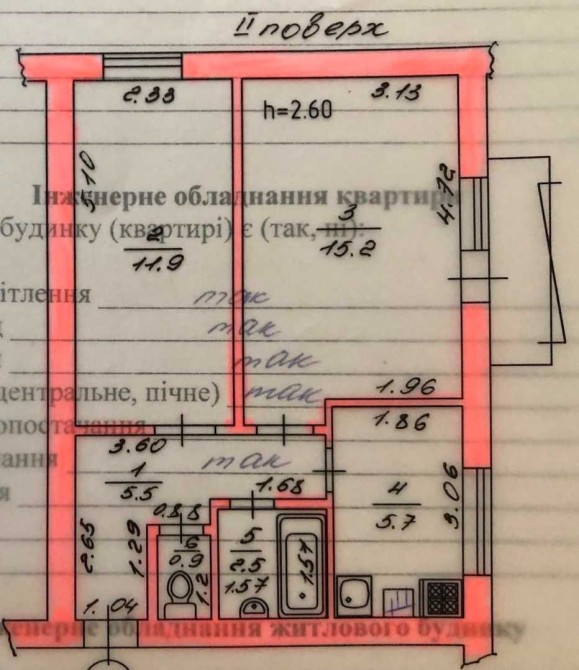 II поверх
2.33
3.13
h=2.60
5.10
4.72
Інженерне обладнання квартири
будинку (квартирі) є (так, ні):
2
11.9
3
15.2
ітлення так
так
так
(центральне, пічне) так
опостачання
1.96
1.86
3.60
1
5.5
так
1.68
4
5.7
3.06
0.88
2.65
1.29
6
0.9
1.2
5
2.5
1.57
1.51
1.04
женерне обладнання житлового будинку